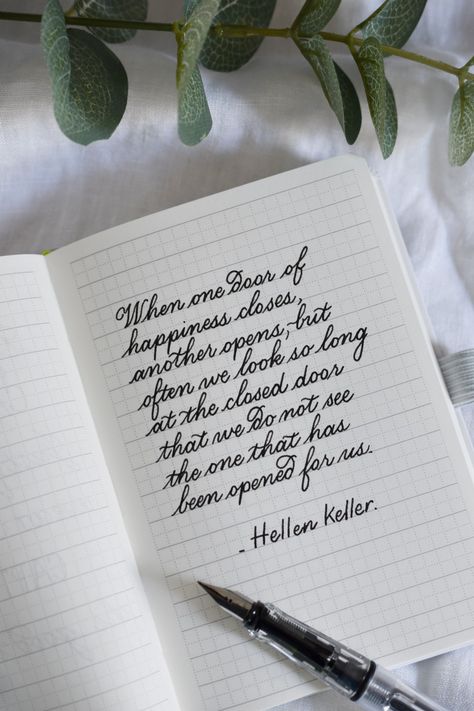 When one door of
happiness closes,
another opens, but
often we look so long
at the closed door
that we do not see
the one that has
been opened for us.
- Hellen Keller.